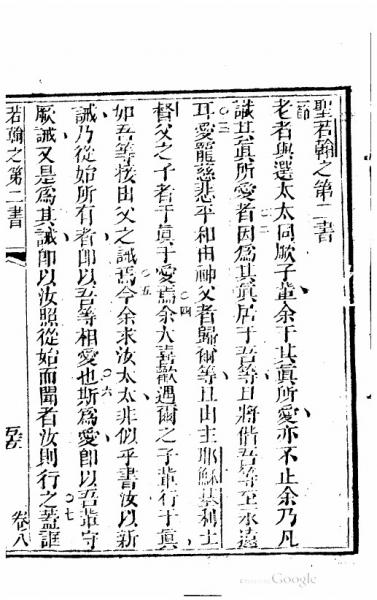 聖若翰之第二書
一節
老者與選太太同厥子輩余于其眞所愛亦不止余乃凡
識其眞所愛者因爲其眞居于吾等且將偕吾等至永遠
耳愛寵慈悲平和由神父者歸爾等且由主耶穌基利士
督父之子者于眞于愛焉余大喜歡遇爾之子輩行于眞
如吾等接由父之誡焉今余求汝太太非似乎書汝以新
誡乃從始所有者卽以吾等相愛也斯爲愛卽以吾輩守
厥誡又是爲其誡卽以汝照從始而聞者汝則行之蓋誑
○二
○三
○四
○五
○六
○七
若翰之第二書
卷八
Google